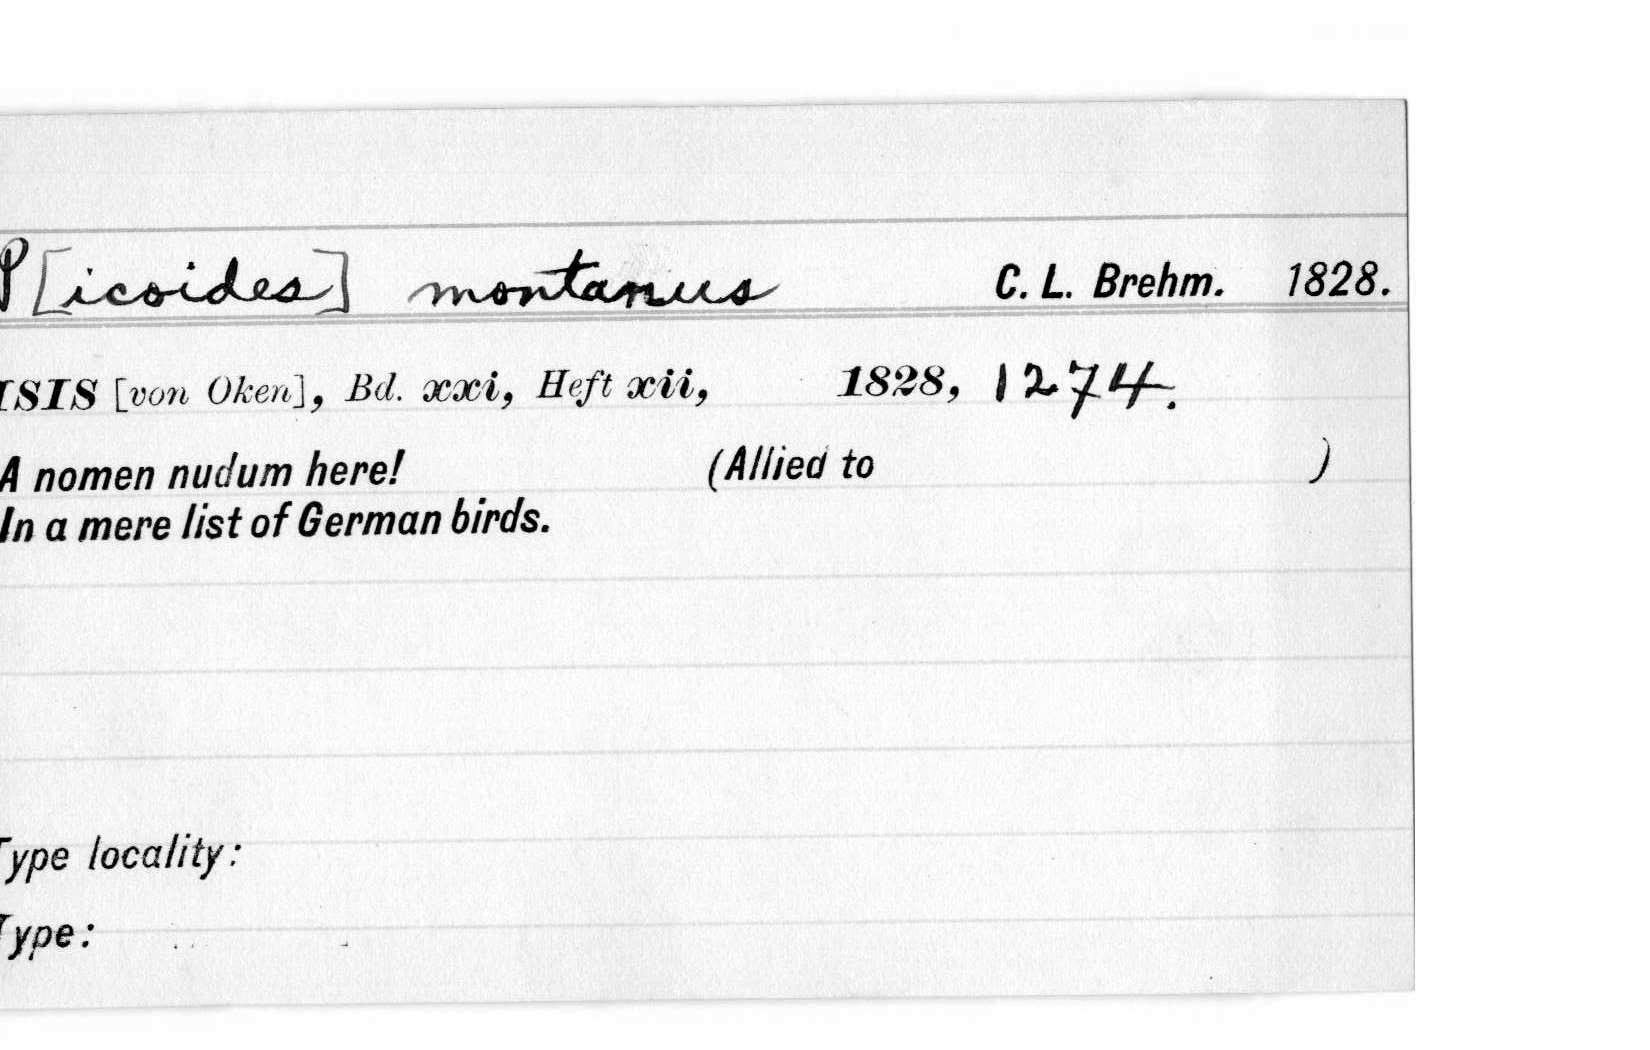 P[icoides] montanus C. L. Brehm. 1828.
ISIS [von Oken], Bd. xxi, Heft xii, 1828, 1274.
A nomen nudum here! (Allied to )
In a mere list of German birds.
Type locality:
Type: